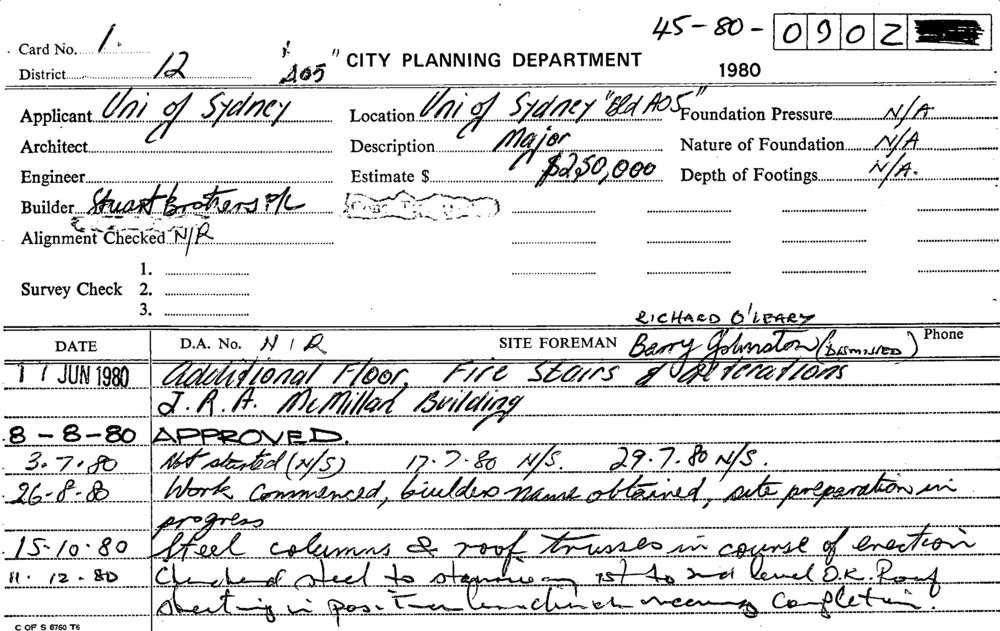 45-80- 0902
Card No. 1.
District 12
1
A05 "
CITY PLANNING DEPARTMENT
1980
Applicant Uni of Sydney
Location Uni of Sydney "Bld A05"
Foundation Pressure N/A
Architect
Description Major
Nature of Foundation N/A
Engineer
Estimate $ $250,000
Depth of Footings N/A.
Builder Stuart Brothers P/L
Alignment Checked N/R
1.
Survey Check 2.
3.
RICHARD O'LEARY
DATE D.A. No. N/R SITE FOREMAN Barry Johnston (DISMISSED) Phone
17 JUN 1980 Additional Floor, Fire Stairs & Alterations
J.R.A. McMillan Building
8-8-80 APPROVED.
3.7.80 Not started (N/S) 17.7.80 N/S. 29.7.80 N/S.
26-8-80 Work commenced, builders name obtained, site preparation in
progress
15-10-80 Steel columns & roof trusses in course of erection
11.12.80 Checked steel to stairway 1st to 2nd level O.K. Roof
sheeting in position nearing completion.
C OF S 6760 T6